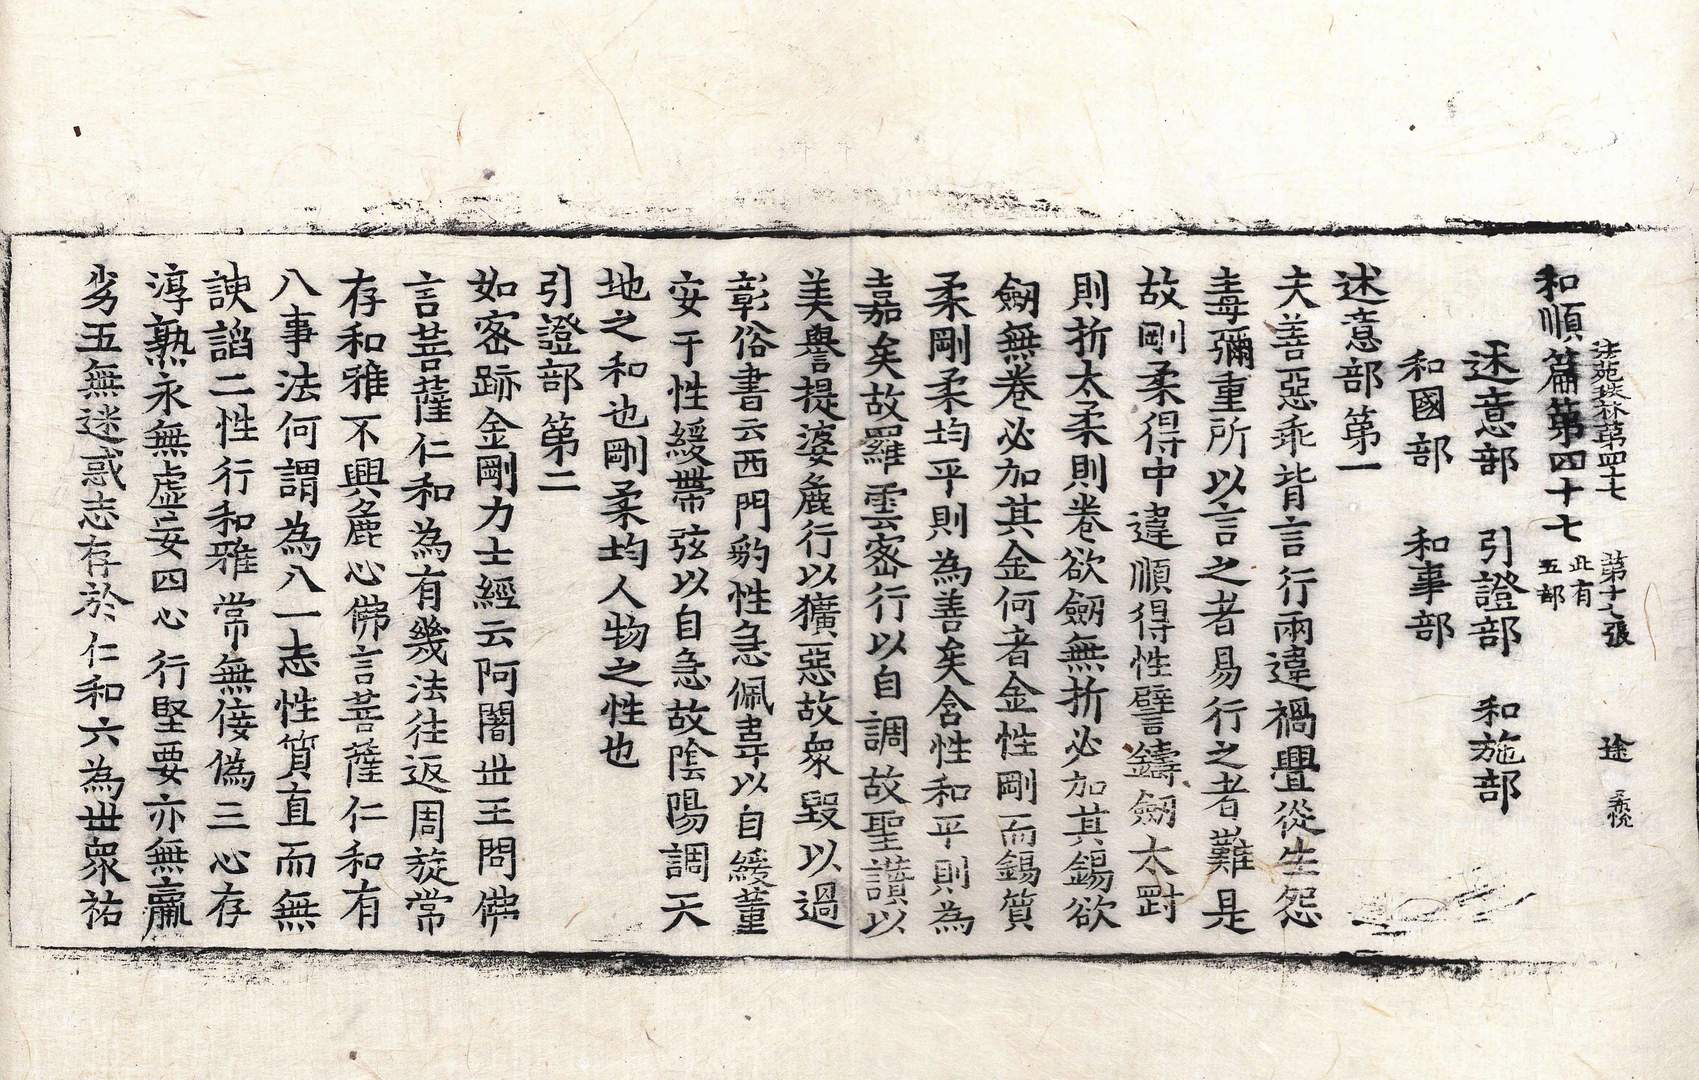 法苑珠林第四十七 第十之張 途
和順篇第四十七 此有五部
述意部 引證部 和施部
和國部 和事部
述意部第一
夫善惡乖背言行兩違禍釁從生怨
毒彌重所以言之者易行之者難是
故剛柔得中違順得性譬言鑄劒太剛
則折太柔則卷欲劒無折必加其錫欲
劒無卷必加其金何者金性剛而錫質
柔剛柔均平則為善矣含性和平則為
嘉矣故羅雲密行以自調故聖讃以
美譽提婆麁行以獷惡故衆毀以過
彰俗書云西門豹性急佩韋以自緩董
安于性緩帶弦以自急故陰陽調天
地之和也剛柔均人物之性也
引證部第二
如密跡金剛力士經云阿闍世王問佛
言菩薩仁和為有幾法往返周旋常
存和雅不興麁心佛言菩薩仁和有
八事法何謂為八一志性質直而無
諛諂二性行和雅常無倿偽三心存
淳熟永無虛妄四心行堅要亦無羸
劣五無迷惑志存於仁和六為世衆祐